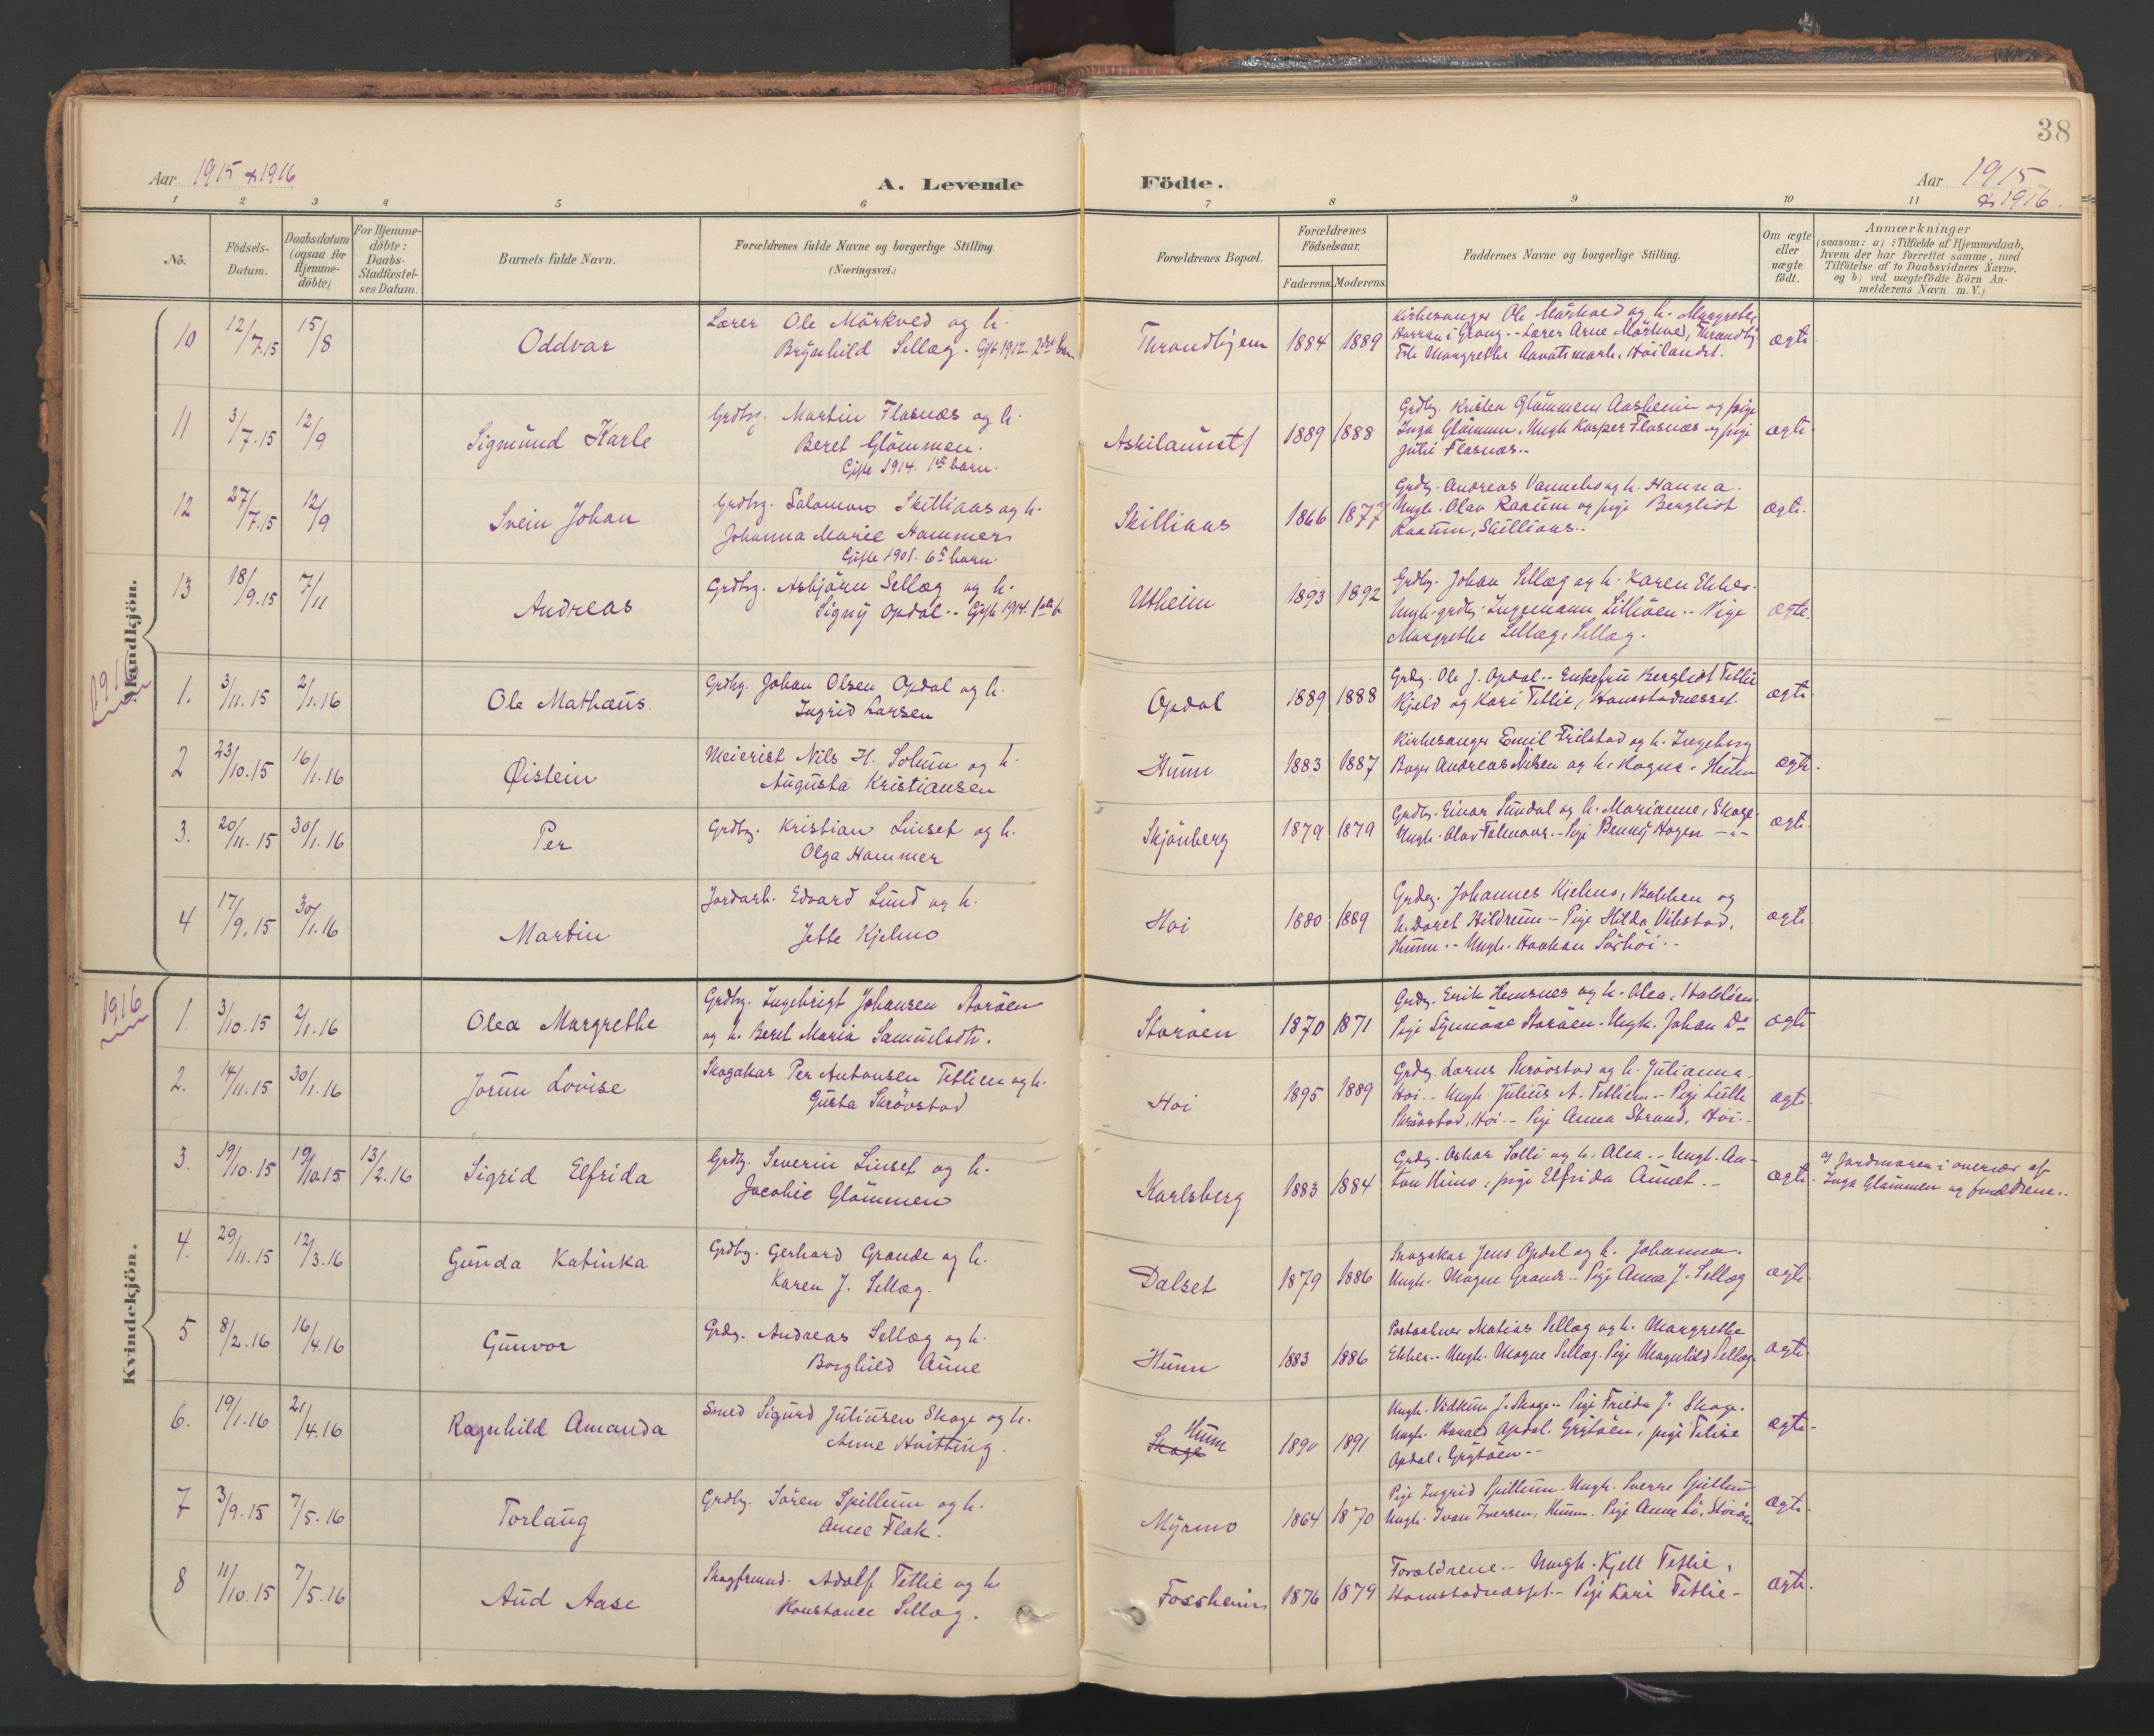 38
Aar 1915 & 1916
A. Levende Födte.
Aar 1915 & 1916.
1 2 3 4 5 6 7 8 9 10 11
No. Födsels-Datum. Daabsdatum (ogsaa for Hjemme-döbte) For Hjemme-döbte: Daabs-Stadfæstel-ses Datum. Barnets fulde Navn. Forældrenes fulde Navne og borgerlige Stilling. (Næringsvei.) Forældrenes Bopæl. Forældrenes Födselsaar. Faderens. Moderens. Faddernes Navne og borgerlige Stilling. Om ægte eller uægte födt. Anmærkninger (saasom: a) i Tilfælde af Hjemmedaab, hvem der har forrettet samme, med Tilföielse af to Daabsvidners Navne, og b) ved uægtefödte Börn An-melderens Navn m. V.)
Mandkjön.
10 12/7.15 15/8 Oddvar Lærer Ole Mörkved og h. Throndhjem 1884 1889 Kirkesanger Ole Mörkved og h. Margrethe ægte
Brynhild Sellæg. Gift 1912. 2det barn Harran i Grong.- Lærer Arne Mörkved, Throndhj.
Margrethe Aavatsmark, Höilandet.
11 3/7.15 12/9 Sigmund Karle Grdbg. Martin Flasnes og h. Askilaunet 1889 1888 Grdbg. Kristen Glömmen Aasheim og pige ægte
Beret Glömmen. Inga Glömmen. Ungk. Kasper Flasnes og pige
Gifte 1914. 1ste barn. Julie Flasnes.-
12 27/7.15 12/9 Svein Johan Grdbg. Salomon Skilliaas og h. Skilliaas 1866 1877 Grdbg. Andreas Vannebo og h. Hanna. ægte.
Johanna Marie Hammer Ungk. Olav Raaum og pige Bergliot
Gifte 1901. 6te barn. Raaum, Skilliaas.-
13 18/9.15 7/11 Andreas Grdbg. Asbjörn Sellæg og h. Utheim 1893 1892 Grdbg. Johan Sellæg og h. Karen Ekker. ægte.
Signy Opdal.- Gift 1914. 1ste b. Ungk. grdbg. Ingemann Lilleöen.- Pige
Margrethe Sellæg, Sellæg.
1916
1. 3/11.15 2/1.16 Ole Mathæus. Grdbg. Johan Olsen Opdal og h. Opdal 1889 1888 Grdbg. Ole J. Opdal.- Enkefru Bergliot Tetlie ægte
Ingrid Larsen Kjeld og Kari Tetlie, Homstadnesset.
2 23/10.15 16/1.16 Øistein Meierist Nils H. Solum og h. Hunn 1883 1887 Kirkesanger Emil Frilstad og h. Ingeborg ægte.
Augusta Kristiansen Bager Andreas Nilsen og h. Hunn
3. 20/11.15 30/1.16 Per Grdbg. Kristian Linset og h. Skjönberg 1879 1879 Grdbg. Einar Sundal og h. Marianne, Skage. ægte.
Olga Hammer Ungk. Olav - Pige Benny Hagen -"-
4 17/9.15 30/1.16 Martin Jordarb. Edvard Lund og h. Hoi 1880 1889 Grdbg. Johannes Kjelmo, Bakken og ægte
Jette Kjelmo h. Doret Hildrum.- Pige Hilda Vibstad,
Hunn.- Ungk. Haakon Sörhöi.-
Kvindekjön.
1916
1. 3/10.15 2/1.16 Olea Margrethe Grdbg. Ingebrigt Johansen Storöen Storöen 1870 1871 Grdbg. Erik Hemsnes og h. Olea, ægte
og h. Beret Maria Samuelsdtr. Pige Synnöve Storöen. Ungk. Johan Do
2. 14/11.15 30/1.16 Jorun Lovise Skogskar Per Antonsen Tetliem og h. Hoi 1895 1889 Grdbg. Lorns Skrövstad og h. Julianna, ægte
Gusta Skrövstad Hoi.- Ungk. Julius A. Tetliem.- Pige
Skrövstad, Hoi.- Pige Anna Strand, Hoi.-
3. 19/10.15 19/10.15 13/2.16 Sigrid Elfrida Grdbg. Severin Linset og h. Karlsberg 1883 1884 Grdbg. Oskar Solli og h. Olea.- Ungk. An- ægte. af Jordmoren i overvær af
Jacobie Glömmen ton Himo, pige Elfrida Aunet.- Inga Glömmen og forældrene.-
4. 29/11.15 12/3.16 Gunda Katinka Grdbg. Gerhard Grande og h. Dalset 1879 1886 Skogskar Jens Opdal og h. Johanna. ægte.
Karen J. Sellæg. Ungk. Magne Grande.- Pige Anna J. Sellæg
5 8/2.16 16/4.16 Gunvor Grdbg. Andreas Sellæg og h. Hunn 1883 1886 Postaabner Matias Sellæg og h. Margrethe ægte.
Borghild Aune Ekker.- Ungk. Magne Sellæg. Pige Magnhild Sellæg.
6. 19/1.16 21/4.16 Ragnhild Amanda Smed Sigurd Juliusen Skage og h. Hunn 1890 1891 Ungk. Vidkun J. Skage.- Pige Frieda J. Skage. ægte.
Anne Kvitting. Skage Ungk. Harald Opdal, Grytöen, pige Tilise
Opdal, Grytöen.-
7 3/9.15 7/5.16 Torlaug Grdbg. Sören Spillum og h. Myrmo 1864 1870 Pige Ingrid Spillum. Ungk. Sverre Spillum ægte.
Anne Flak. Ungk. Ivan Iversen, Hunn. Pige Anna
8 11/10.15 7/5.16 Aud Aase Skogfmd. Adolf Tetlie og h. Fossheim 1876 1879 Forældrene.- Ungk. Kjell Tetlie, ægte.
Konstance Sellæg. Homstadnæsset.- Pige Kari Tetlie.-